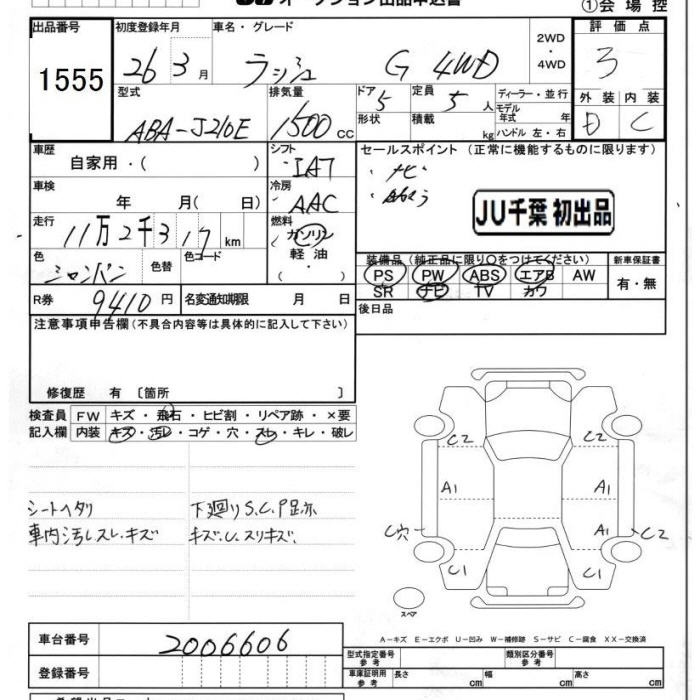 オークション出品申込書
①会場控
出品番号 1555
初度登録年月 26 3月
車名・グレード ラッシュ G 4WD
2WD・4WD
評価点 3
型式 ABA-J210E
排気量 1500 cc
ドア 5 定員 5人
形状 積載 kg
ディーラー・並行
モデル年式 年
ハンドル 左・右
外装 D 内装 C
車歴 自家用・( )
シフト IAT
セールスポイント (正常に機能するものに限ります)
・ナビ
・
車検 年 月( 日)
冷房 AAC
JU千葉 初出品
走行 11万2千317km
燃料 ガソリン 軽油・( )
色 シャンパン 色替 色コード
装備品 (純正品に限り○をつけてください)
新車保証書 有・無
PS PW ABS エアB AW
SR ナビ TV カワ
R券 9410円
名変通知期限 月 日
後日品
注意事項申告欄(不具合内容等は具体的に記入して下さい)
修復歴 有 〔箇所 〕
検査員記入欄
FW キズ・飛石・ヒビ割・リペア跡・×要
内装 キズ・汚レ・コゲ・穴・スレ・キレ・破レ
シートヘタリ
車内汚レスレ・キズ
下廻りS.C.
キズ.U.スリキズ.
C2 C2
A1 A1
C穴 A1 C2
C1 C1
スペア
A-キズ E-エクボ U-凹み W-補修跡 S-サビ C-腐食 XX-交換済
車台番号 2006606
登録番号
型式指定番号 参考
類別区分番号 参考
車庫証明用 参考 長さ cm 幅 cm 高さ cm